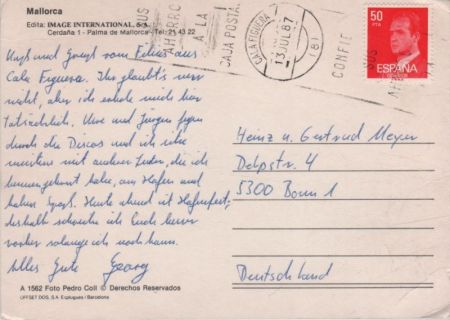 Mallorca
Edita: IMAGE INTERNATIONAL, S.A.
Cerdaña 1 - Palma de Mallorca - Tel. 21 43 22
SUS
AHORRO
A LA
CAJA POSTAL
CALA FIGUERA
13 JUL 87
(8)
CONFIE
SUS
50
PTA
ESPAÑA
und Gruß vom aus
Cala Figuera. Ihr glaubt's
nicht, aber ich erhole mich hier
tatsächlich. Uwe und Jürgen
durch die Discos und ich
meistens mit anderen Leuten, die ich
kennengelernt habe, am Hafen und
haben Spaß. Heute abend ist Hafenfest,
deshalb schreibe ich Euch
vorher solange ich noch kann.
Alles Gute Georg
Heinz u. Gertrud Meyer
Delpstr. 4
5300 Bonn 1
Deutschland
A 1562 Foto Pedro Coll © Derechos Reservados
OFFSET DOS. S.A. Esplugues / Barcelona